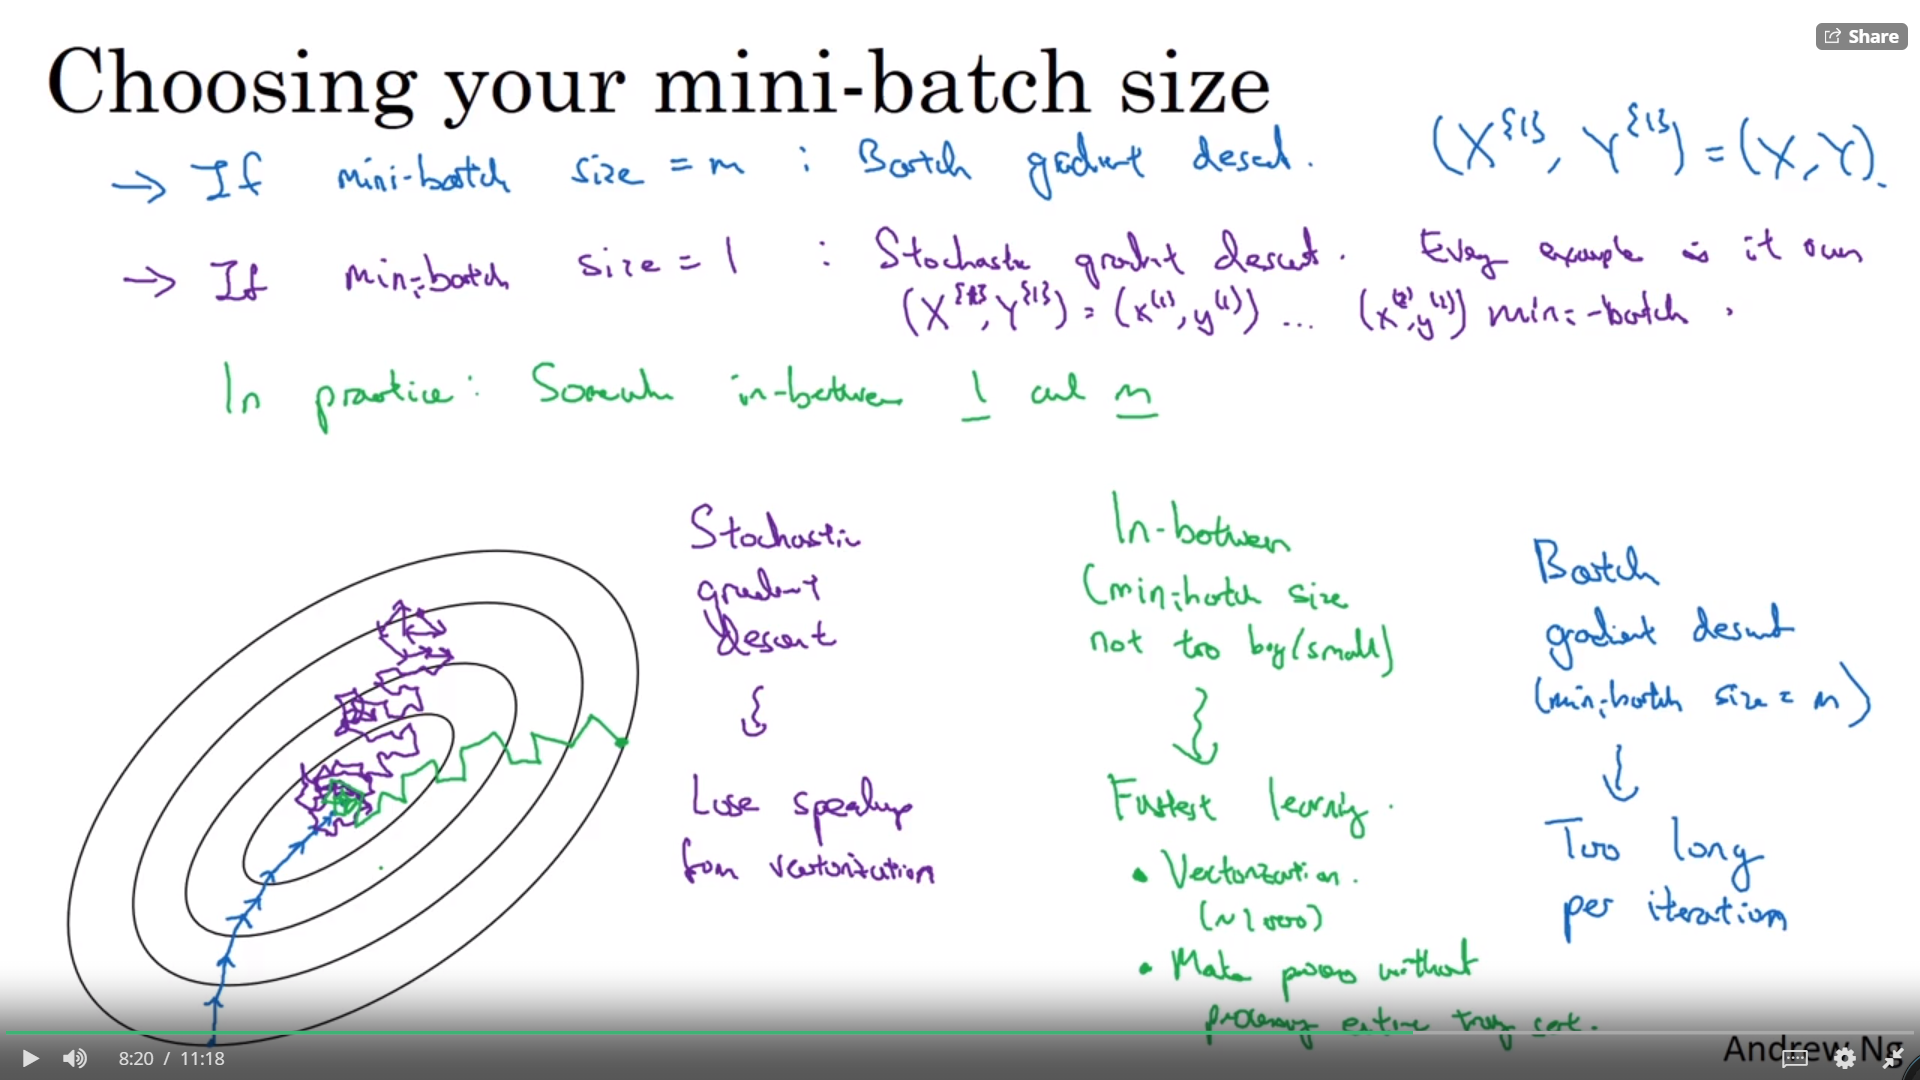 Share
Choosing your mini-batch size
→ If mini-batch size = m : Batch gradient descent. (X^{1}, Y^{1}) = (X, Y).
→ If mini-batch size = 1 : Stochastic gradient descent. Every example is it own
(X^{1}, Y^{1}) = (x^(1), y^(1)) ... (x^(2), y^(2)) mini-batch.
In practice: Somewhere in-between 1 and m
Stochastic
gradient
descent
Lose speedup
from vectorization
In-between
(mini-batch size
not too big/small)
Fastest learning.
• Vectorization.
(~1000)
• Make progress without
processing entire training set.
Batch
gradient descent
(mini-batch size = m)
Too long
per iteration
8:20 / 11:18
Andrew Ng